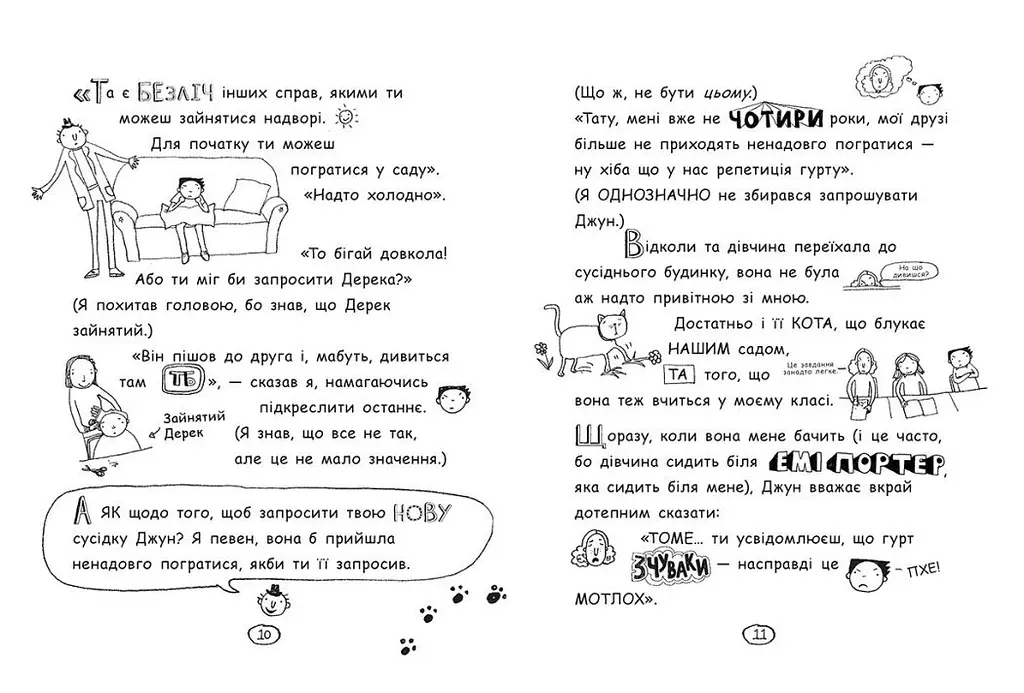 «Та є БЕЗЛІЧ інших справ, якими ти
можеш зайнятися надворі.
Для початку ти можеш
погратися у саду».
«Надто холодно».
«То бігай довкола!
Або ти міг би запросити Дерека?»
(Я похитав головою, бо знав, що Дерек
зайнятий.)
«Він пішов до друга і, мабуть, дивиться
там ТБ», — сказав я, намагаючись
підкреслити останнє.
Зайнятий
Дерек
(Я знав, що все не так,
але це не мало значення.)
А ЯК щодо того, щоб запросити твою НОВУ
сусідку Джун? Я певен, вона б прийшла
ненадовго погратися, якби ти її запросив.
10
(Що ж, не бути цьому.)
«Тату, мені вже не ЧОТИРИ роки, мої друзі
більше не приходять ненадовго погратися —
ну хіба що у нас репетиція гурту».
(Я ОДНОЗНАЧНО не збирався запрошувати
Джун.)
Відколи та дівчина переїхала до
сусіднього будинку, вона не була
аж надто привітною зі мною.
На що
дивишся?
Достатньо і її КОТА, що блукає
НАШИМ садом,
ТА того, що
вона теж вчиться у моєму класі.
Це завдання
занадто легке.
Щоразу, коли вона мене бачить (і це часто,
бо дівчина сидить біля ЕМІ ПОРТЕР,
яка сидить біля мене), Джун вважає вкрай
дотепним сказати:
«ТОМЕ... ти усвідомлюєш, що гурт
ЗЧУВАКИ — насправді це
МОТЛОХ».
– ПХЕ!
11